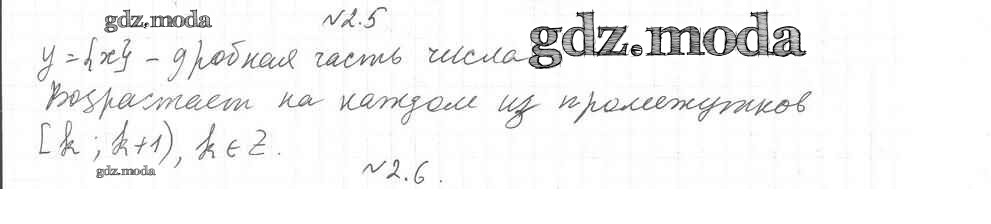 gdz.moda №2.5
y = {x} - дробная часть числа gdz.moda
Возрастает на каждом из промежутков
[k ; k+1), k ∈ Z.
gdz.moda №2.6.